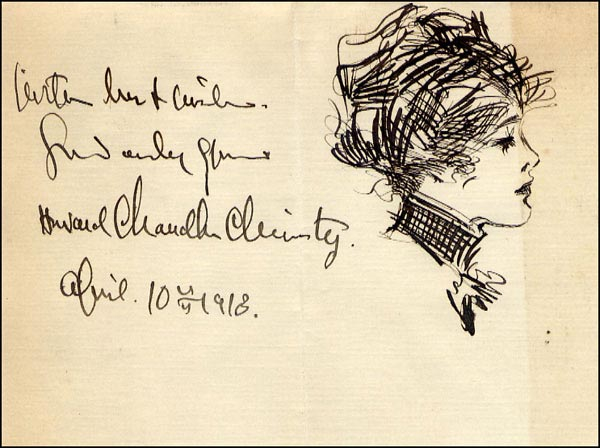 With best wishes.
Sincerely yours
Howard Chandler Christy.
April. 10th 1918.